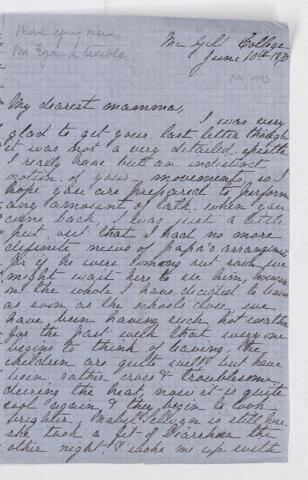 Mr Egan a trouble
McGill College
June 10th 187
My dearest mamma,
I was very
glad to get your last letter though
it was not a very detailed epistle
I really have but an indistinct
notion of your movements, so I
hope you are prepared to perform
any amount of talk when you
come back. I was just a little
put out that I had no more
definite news of Papa's arrangements
for if he were coming out soon, we
might wait here to see him, however
on the whole I have decided to leave
as soon as the schools close, we
have been having such hot weather
for the past week that every one
begins to think of leaving, the
children are quite well but have
been rather cross & troublesome
during the heat, now it is quite
cool again & they begin to look
brighter. Mabel is still here
she took a fit of Diarrhea the
other night & woke me up with